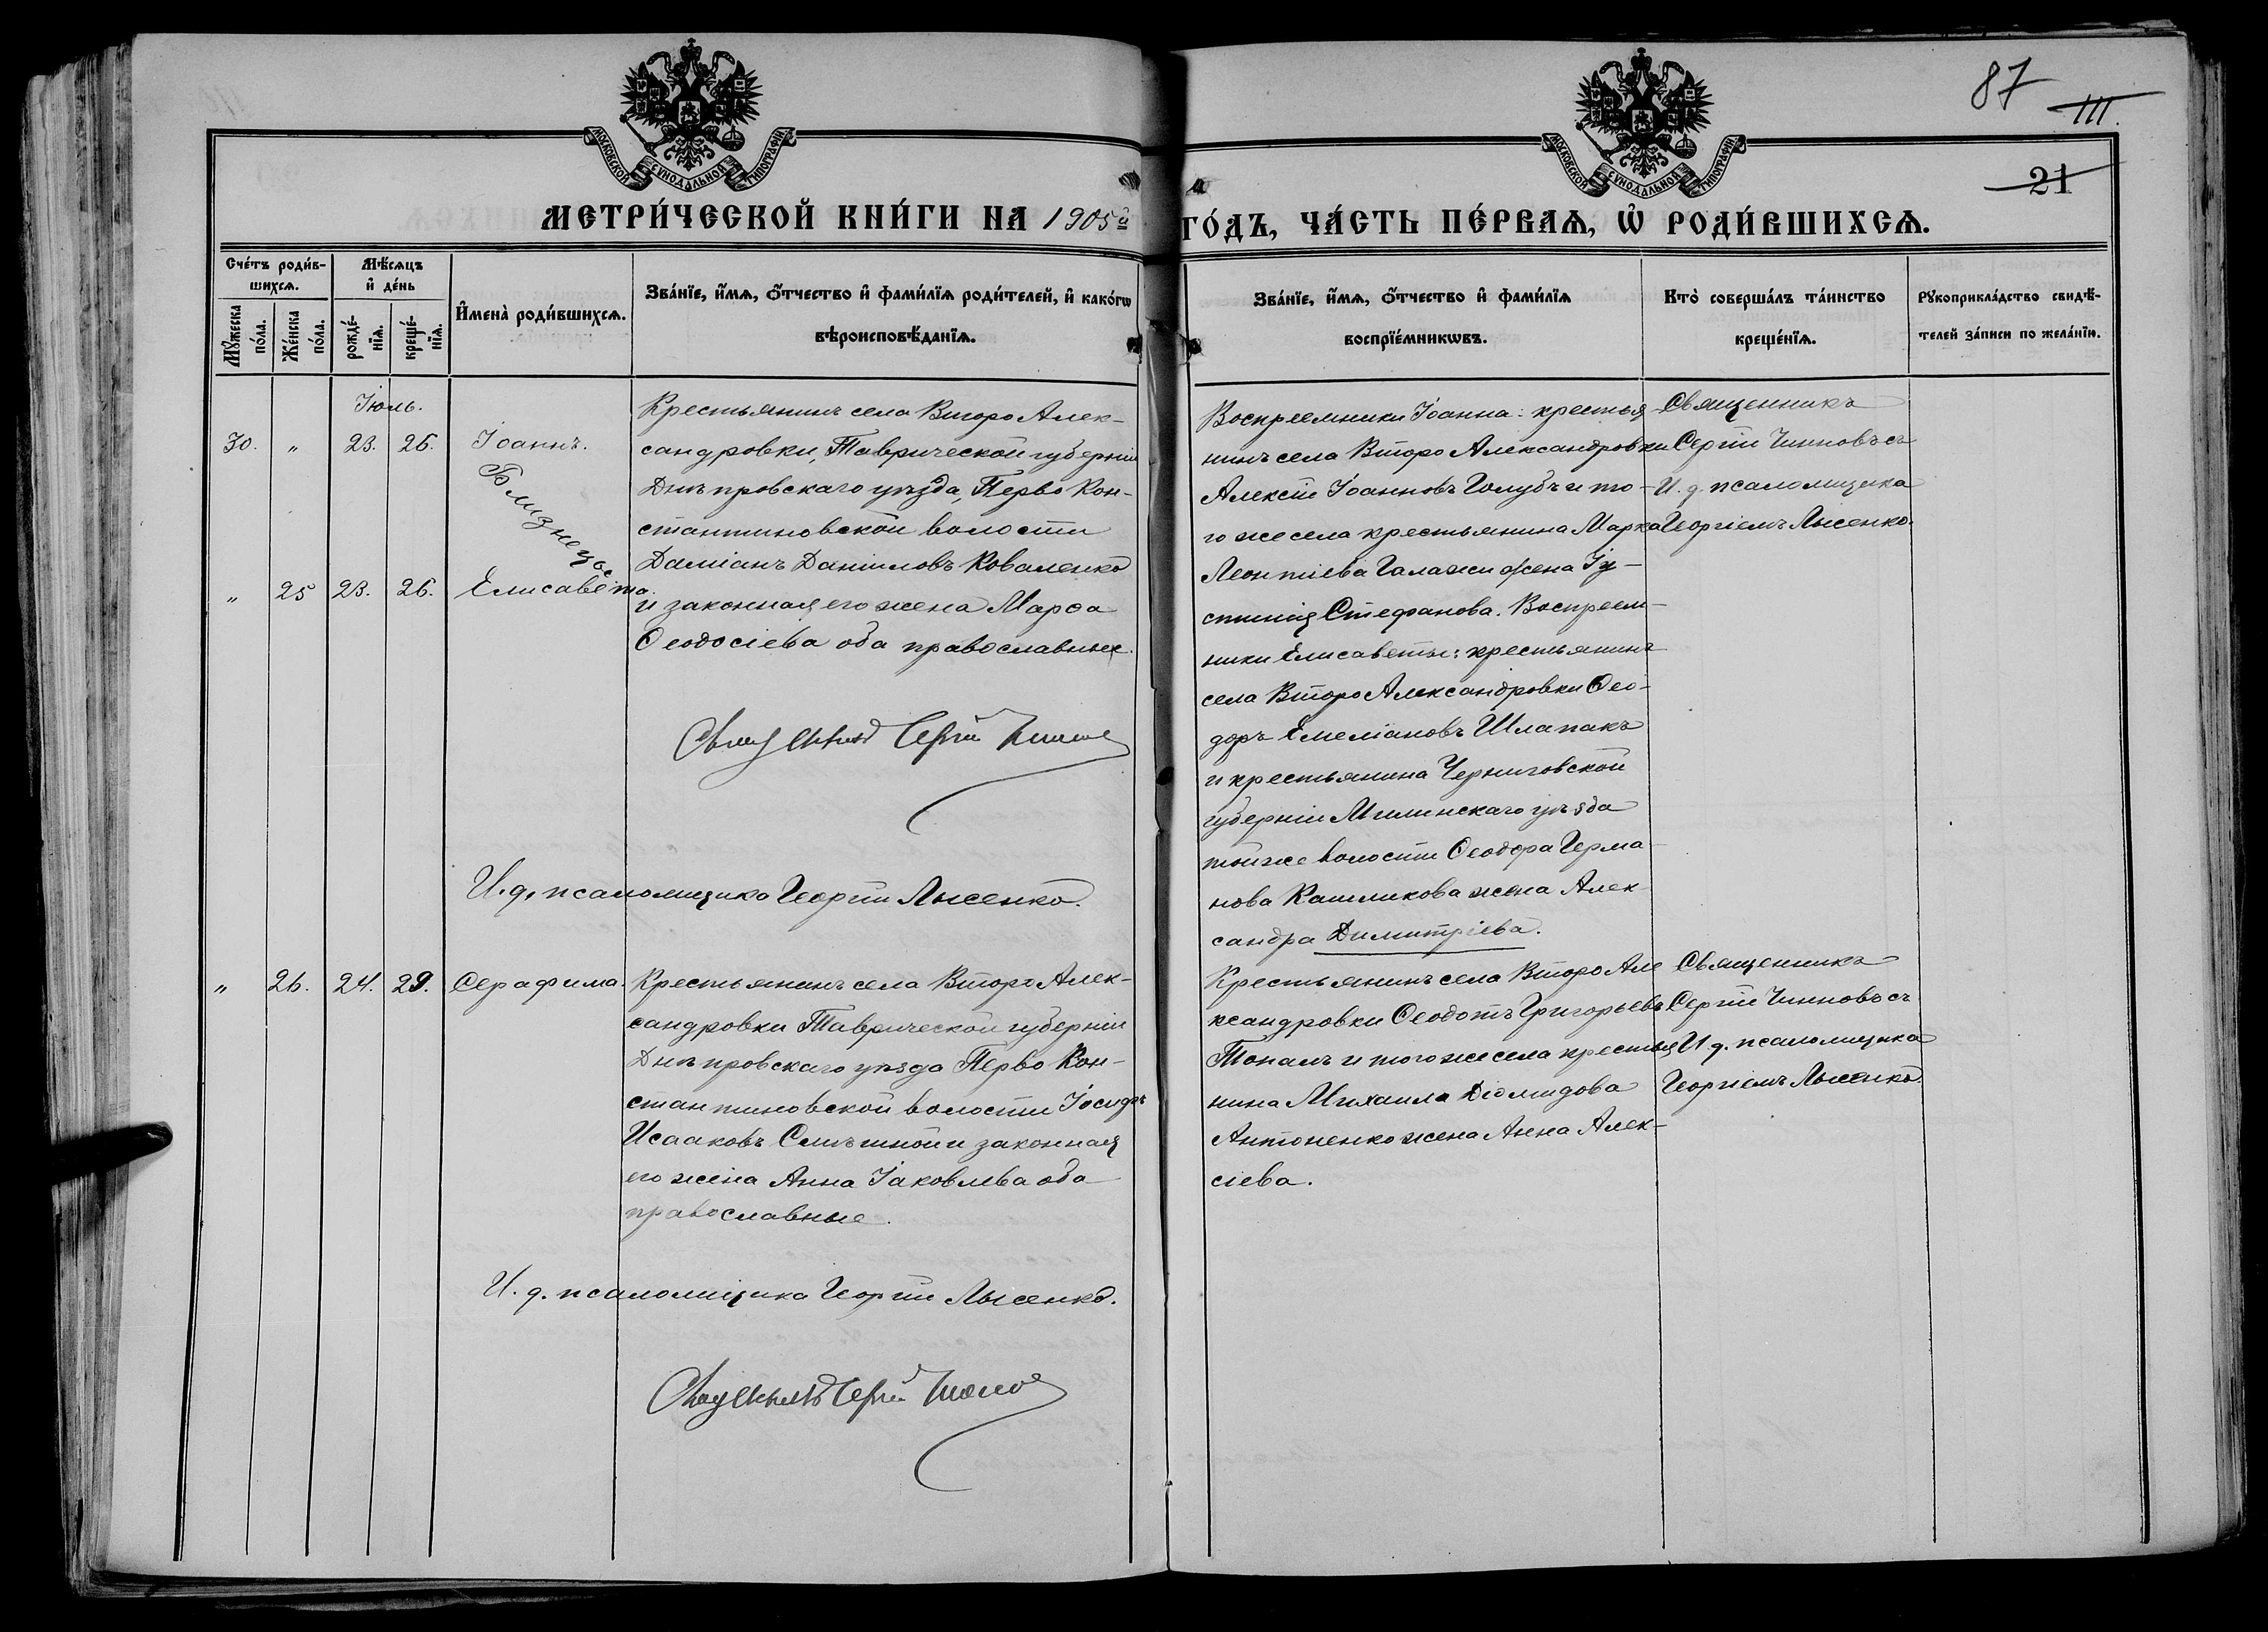 87
111.
21
МОСКОВСКОЙ СѴНОДАЛЬНОЙ ТИПОГРАФІИ
МОСКОВСКОЙ СѴНОДАЛЬНОЙ ТИПОГРАФІИ
МЕТРИ́ЧЕСКОЙ КНИ́ГИ НА 1905й ГО́ДЪ, ЧА́СТЬ ПЕ́РВАѦ, Ѡ҆ РОДИ́ВШИХСѦ.
Сче́тъ роди́в-
шихсѧ.
Мꙋ́жеска по́ла.
Же́нска по́ла.
Мѣ́сѧцъ
и҆ де́нь
рожде́-
нїѧ.
креще́-
нїѧ.
И҆мена̀ роди́вшихсѧ.
Зва́нїе, и҆́мѧ, ѻ҆́тчество и҆ фами́лїѧ роди́телей, и҆ како́гѡ
вѣроисповѣ́данїѧ.
Зва́нїе, и҆́мѧ, ѻ҆́тчество и҆ фами́лїѧ
воспрїе́мникѡвъ.
Кто̀ соверша́лъ та́инство
креще́нїѧ.
Рꙋкоприкла́дство свидѣ́-
телей за́писи по жела́нїю.
Іюль.
30. " 23. 26. Іоаннъ.
Близнецы
" 25 23. 26. Елисавета.
Крестьянинъ села Второ Алек-
сандровки, Таврической губерніи
Днѣпровскаго уѣзда, Перво Кон-
стантиновской волости
Даміанъ Даніиловъ Коваленко
и законная его жена Марѳа
Ѳеодосіева оба православные.
Священникъ Сергій Чинновъ
И. д. псаломщика Георгій Лысенко.
Воспреемники Іоанна: крестья-
нинъ села Второ Александровки
Алексій Іоанновъ Голубъ и то-
го же села крестьянина Марка
Леонтіева Галажи жена Іу-
стинія Стефанова. Воспреем-
ники Елисаветы: крестьянинъ
села Второ Александровки Ѳео-
доръ Емеліановъ Шлапакъ
и крестьянина Черниговской
губерніи Мглинскаго уѣзда
той же волости Ѳеодора Герма-
нова Кашликова жена Алек-
сандра Димитріева.
Священникъ
Сергій Чинновъ съ
И. д. псаломщика
Георгіемъ Лысенко.
" 26. 24. 29. Серафима.
Крестьянинъ села Второ Алек-
сандровки Таврической губерніи
Днѣпровскаго уѣзда Перво Кон-
стантиновской волости Іосифъ
Исааковъ Смѣшной и законная
его жена Анна Іаковлева оба
православные.
И. д. псаломщика Георгій Лысенко.
Священникъ Сергій Чинновъ
Крестьянинъ села Второ Але
ксандровки Ѳеодотъ Григорьевъ
Топалъ и того же села крестья
нина Михаила Діомидова
Антоненко жена Анна Алек-
сіева.
Священникъ
Сергій Чинновъ съ
И. д. псаломщика
Георгіемъ Лысенко.